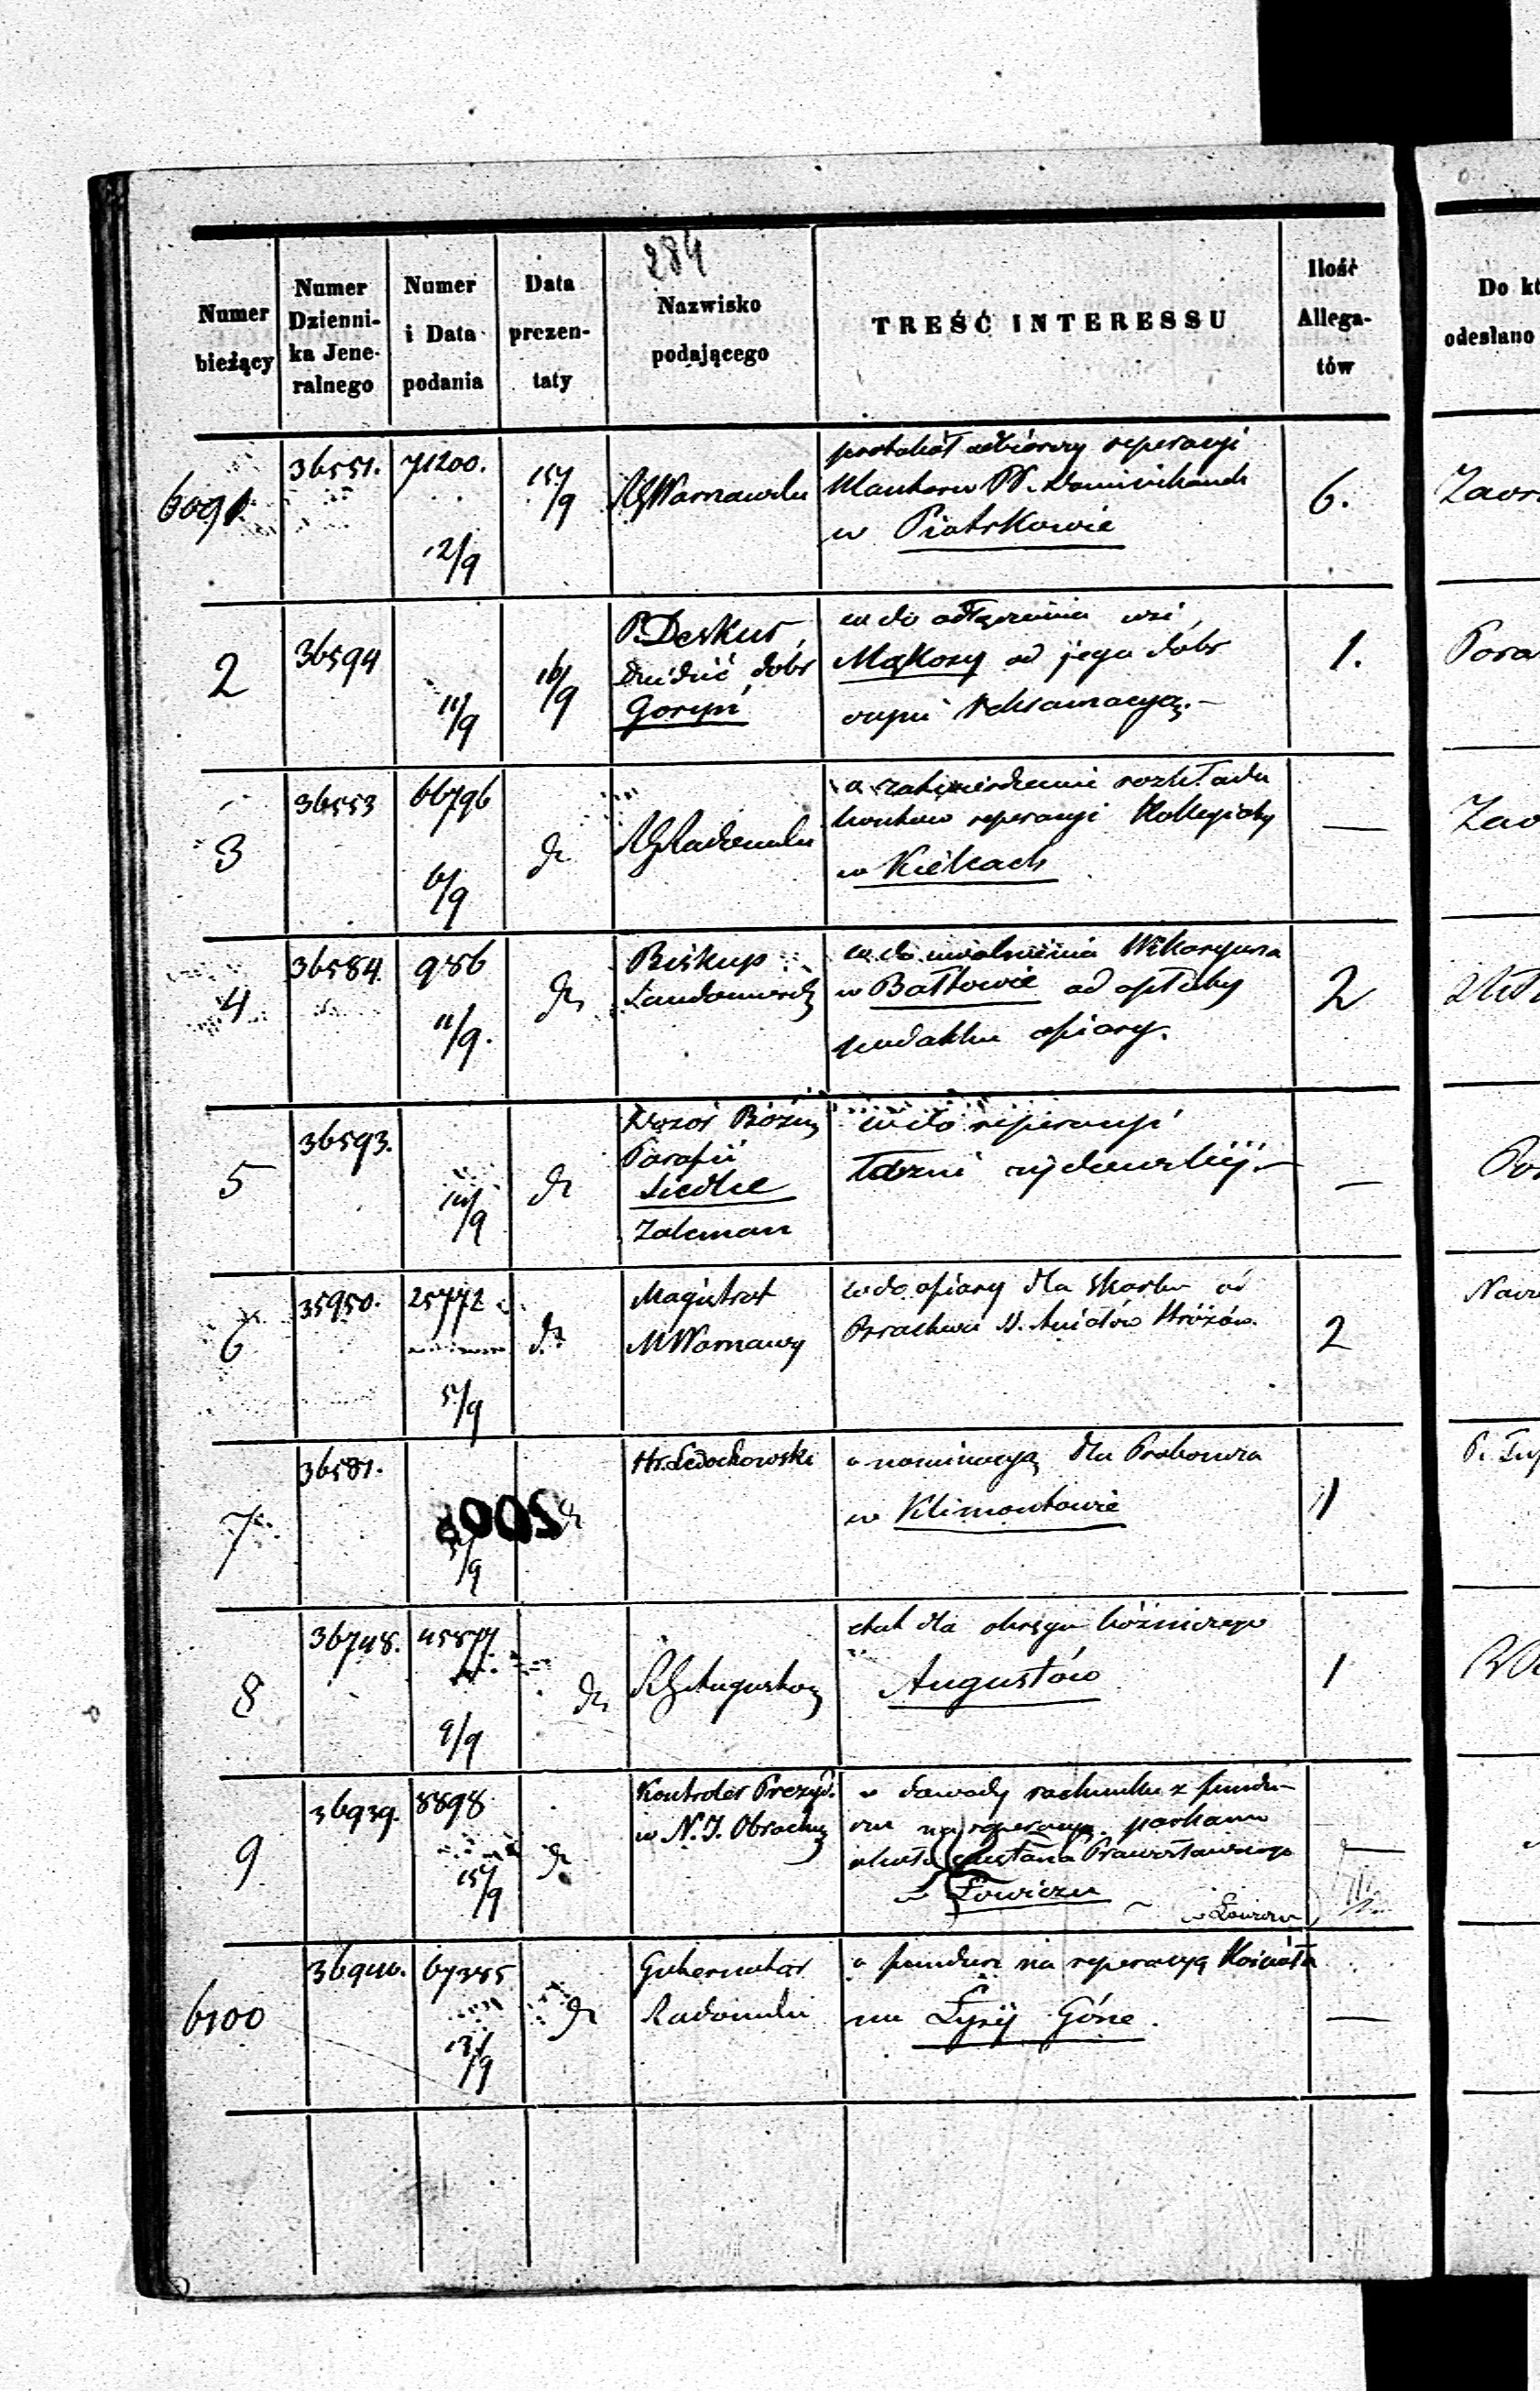 284
Numer bieżący | Numer Dzienni-ka Jene-ralnego | Numer i Data podania | Data prezen-taty | Nazwisko podającego | TREŚĆ INTERESSU | Ilość Allega-tów | Do kt odesłano
6091 | 36551. | 71200. 12/9 | 15/9 | RGWarszawska | protokół odbiorczy reperacyi
Klasztoru PP. Dominikanek
w Piotrkowie | 6.
2 | 36594 | 11/9 | 16/9 | P. Deskur
Dziedzic dóbr
Goryń | wdo odłączenia wsi
Mąkosy od jego dóbr | 1.
3 | 36553 | 66796 6/9 | d | RGRadomska | o zatwierdzenie rozkładu
kosztów reperacyi Kollegiaty
w Kielcach | —
4 | 36584 | 986 11/9. | d | Biskup
Sandomierski | wdo uwolnienia Wikaryusza
w Bałtowie od opłaty
podatku ofiary. | 2
5 | 36593. | 12/9 | d | Dozór Bóżn
Parafii
Siedlce
Zalcman | wdo reperacyi
Łaźni żydowskiéj. — | —
6 | 35950. | 25772 5/9 | d | Magistrat
MWarszawy | wdo ofiary dla Skarbu od
Bractwa SS. Aniołów Stróżów. | 2
7 | 36581. | /9 | d | Hr. Ledochowski | o nominacyą dla Proboszcza
w Klimontowie | 1
8 | 36748. | 45877 9/9 | d | RGAugustow | etat dla okręgu bóżniczego
Augustów | 1
9 | 36939. | 8898 15/9 | d | Kontroler Prezyd.
w N. I. Obrachu | o dowody rachunku z fundu-
szu na reperacyą parkanu
Prawosławnego
w Łowiczu | —
w Łowiczu
6100 | 36940. | 67385 13/9 | d | Gubernator
Radomski | o fundusz na reperacyą Kościoła
na Łyséj Górze. | —